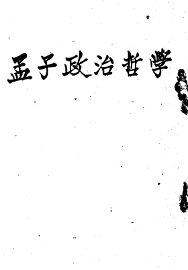 孟子政治哲學